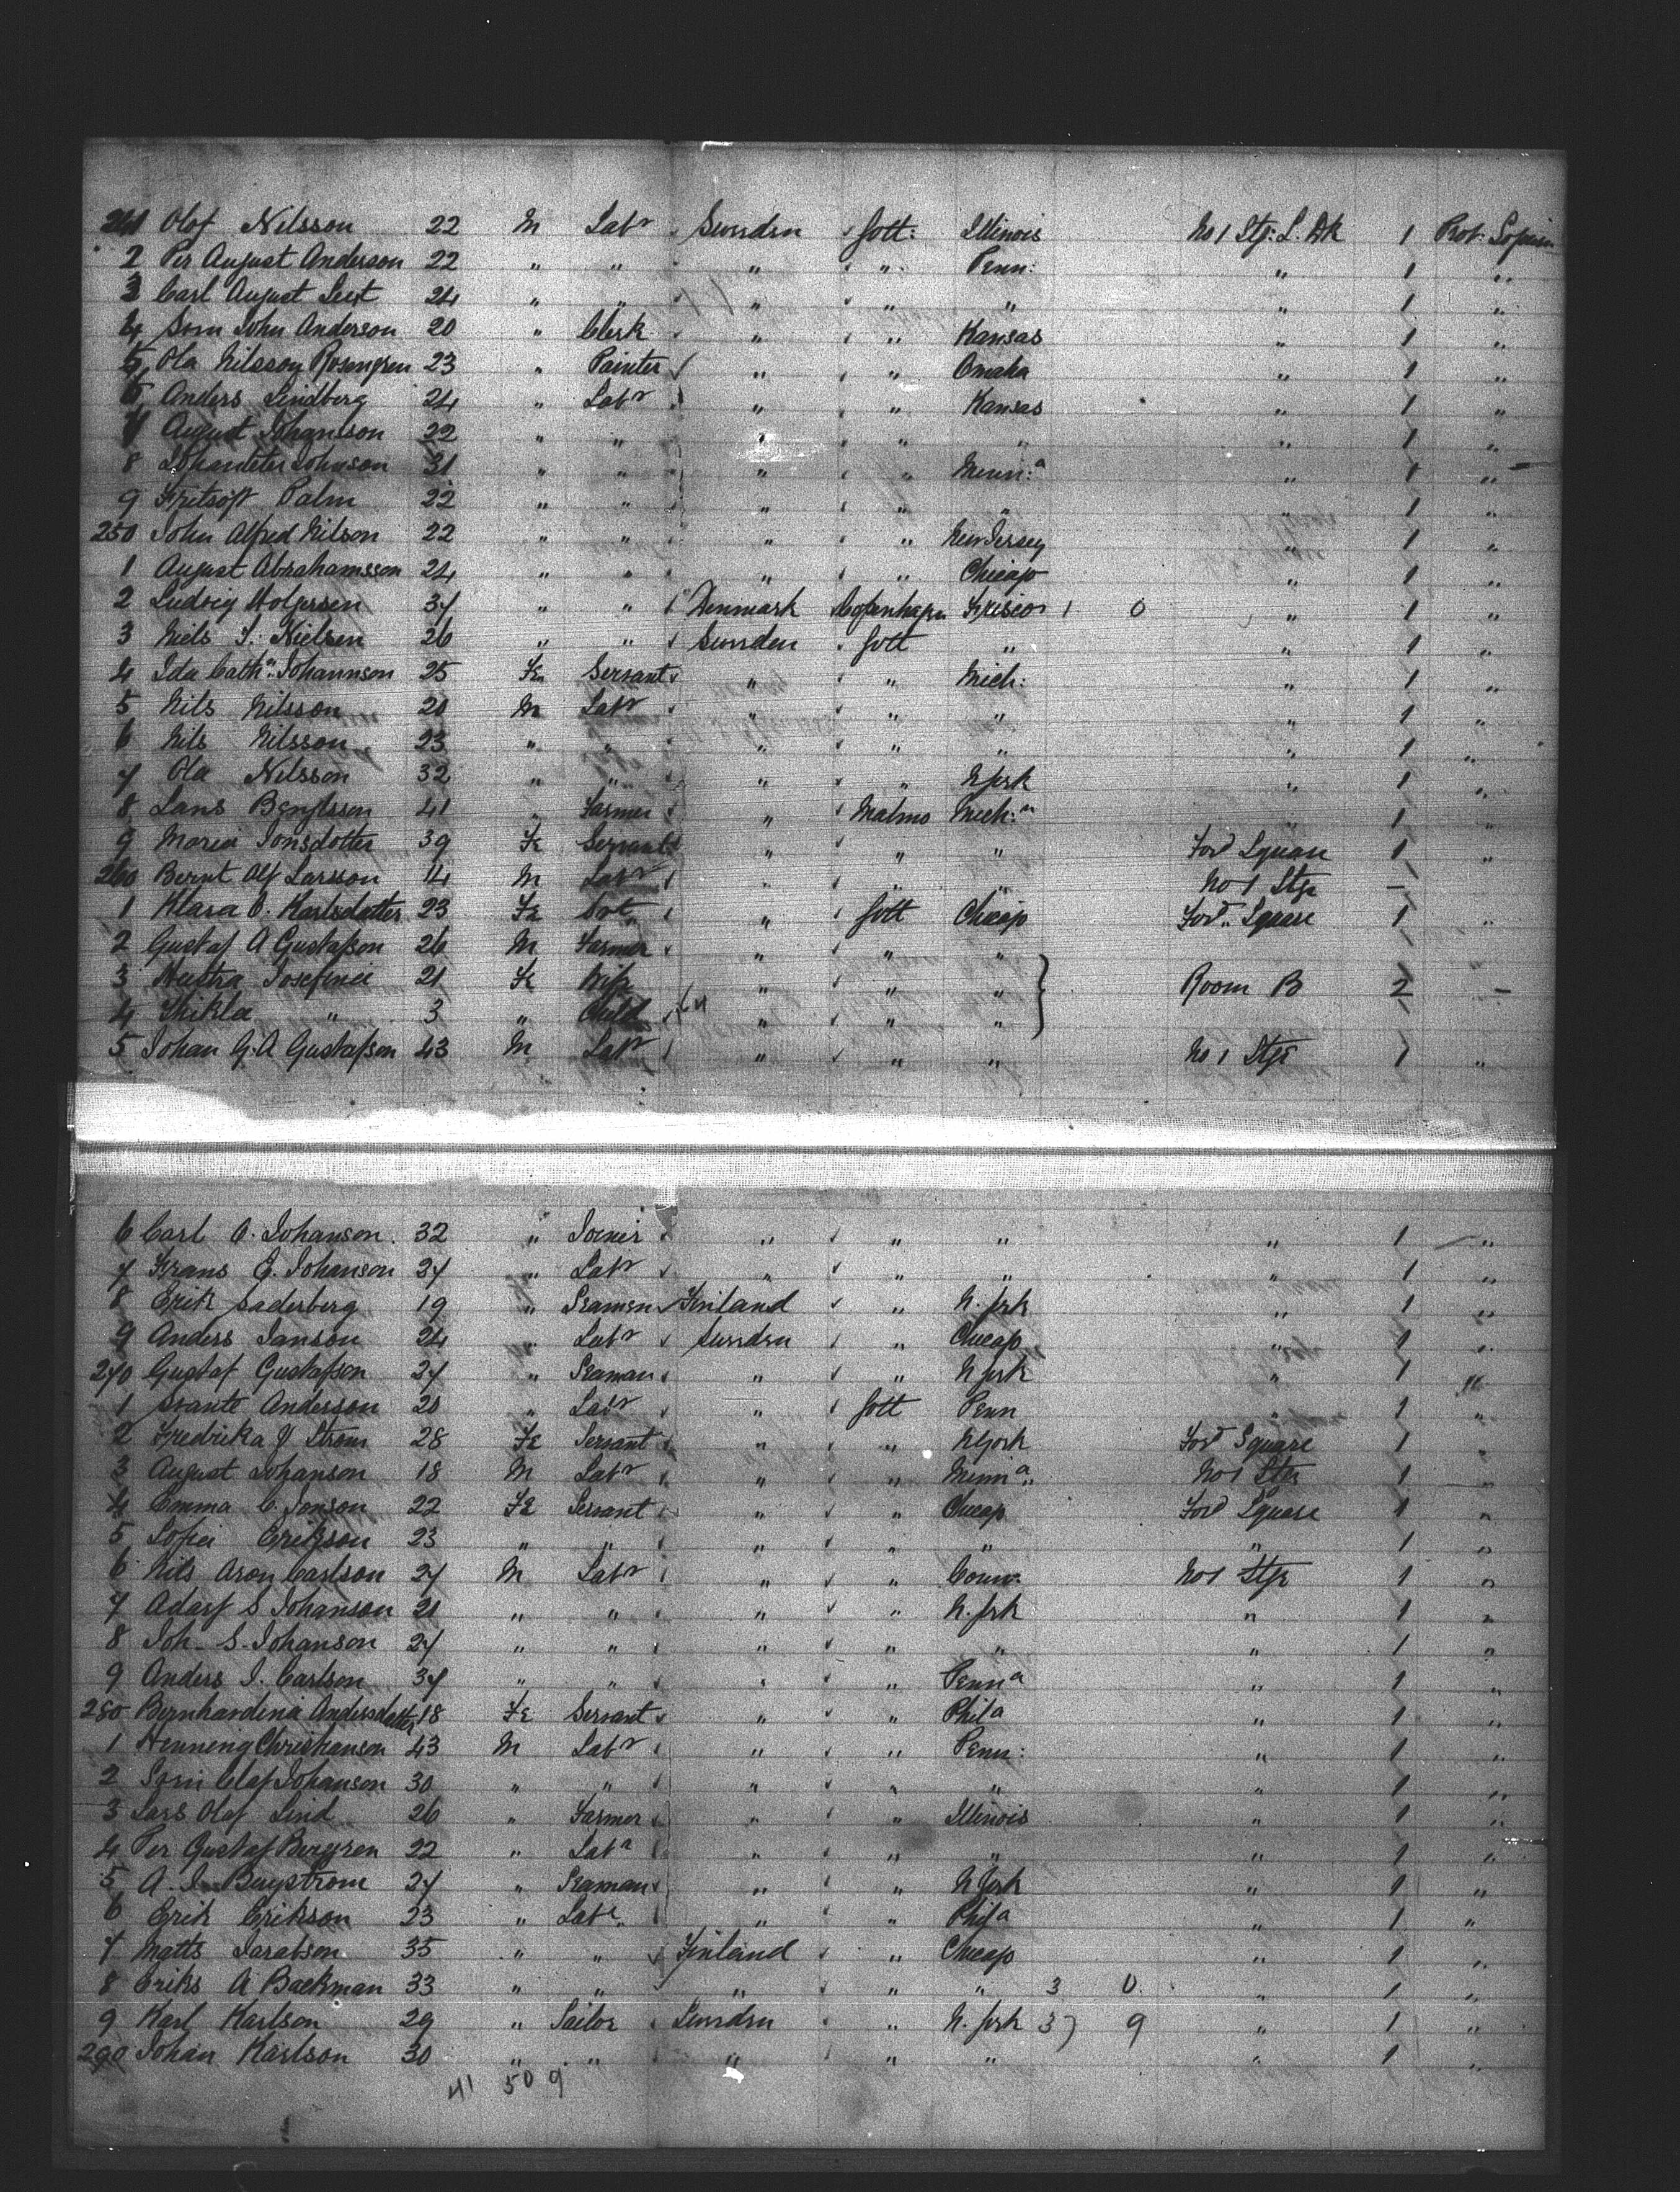 241 Olof Nilsson 22 M Labr Sweeden Gott: Illinois No 1 Stg: L. Dk 1 Prot: Sojourn
2 Per August Anderson 22 " " " " Penn: " 1 "
3 Carl August 24 " " " " " " 1 "
4 Sven John Anderson 20 " Clerk " " Kansas " 1 "
5 Ola Nilsson Rosengren 23 " Painter " " Omaha " 1 "
6 Anders Lindberg 24 " Labr " " Kansas " 1 "
7 August Johansson 22 " " " " " " 1 "
8 Johnson 31 " " " " Minn:a " 1 "
9 Fritsoff Palm 22 " " " " " " 1 "
250 John Alfred Nilson 22 " " " " New Jersey " 1 "
1 August Abrahamsson 24 " " " " Chicago " 1 "
2 Ludvig Holgersen 37 " " Denmark Copenhagen Frisco 1 0 " 1 "
3 Niels S. Nielsen 26 " " Sweeden Gott " " 1 "
4 Ida Cathn: Johannson 25 Fe Servant " " Mich: " 1 "
5 Nils Nilsson 20 M Labr " " " " 1 "
6 Nils Nilsson 23 " " " " " " 1 "
7 Ola Nilsson 32 " " " " N York " 1 "
8 Lans Bengtsson 41 " Farmer " Malmo Mich:n " 1 "
9 Maria Jonsdotter 39 Fe Servant " " " Ford Square 1 "
260 Bernt Alf Larsson 14 M Labr " " " No 1 Stge –
1 Klara C. Karlsdotter 23 Fe " Gott Chicago Ford: Square 1 "
2 Gustaf A Gustafson 26 M Farmer " " "
3 Josefina 21 Fe Wife " " " Room B 2 –
4 Thikla " 3 " Child " " "
5 Johan G. A Gustafson 43 M Labr " " " No 1 Stge 1 "
6 Carl A. Johanson 32 " Joiner " " " " 1 "
7 Frans E. Johanson 37 " Labr " " " " 1 "
8 Erik Saderberg 19 " Seamen Finland " N. York " 1 "
9 Anders Janson 24 " Labr Sweeden " Chicago " 1 "
270 Gustaf Gustafson 27 " Seaman " " N York " 1 "
1 Svante Anderson 20 " Labr " Gott Penn " 1 "
2 Fredrika J Strom 28 Fe Servant " " N York Ford Square 1 "
3 August Johanson 18 M Labr " " Minn a No 1 Stge 1 "
4 Emma C. Jonson 22 Fe Servant " " Chicago Ford Square 1 "
5 Sofia Erikson 23 " " " " " " 1 "
6 Nils Aron Carlson 27 M Labr " " Conn: No 1 Stge 1 "
7 Adolf S Johanson 21 " " " " N. York " 1 "
8 Joh- S. Johanson 27 " " " " " " 1 "
9 Anders J. Carlson 37 " " " " Penn a " 1 "
280 Bernhardina Andersdatter 18 Fe Servant " " Phila " 1 "
1 Henning Christianson 43 M Labr " " Penn: " 1 "
2 Sven Olaf Johanson 30 " " " " " " 1 "
3 Lars Olof Lind 26 " Farmer " " Illinois " 1 "
4 Per Gustaf Bergren 22 " Labr " " " " 1 "
5 A. J. Bergstrom 27 " Seaman " " N York " 1 "
6 Erik Erikson 23 " Labr " " Phila " 1 "
7 Matts Jacobson 35 " " Finland " Chicago " 1 "
8 Eriks A Backman 33 " " " " " 3 0. " 1 "
9 Karl Karlson 29 " Sailor Sweeden " N. York 3) 9 " 1 "
290 Johan Karlson 30 " " " " " " 1 "
41 50 9